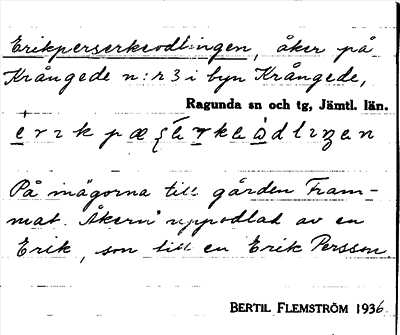 Erikperserkeodlingen, åker på
Krångede n:r 3 i byn Krångede,
Ragunda sn och tg, Jämtl. län.
På inägorna till gården Fram-
mat. Åkern uppodlad av en
Erik, son till en Erik Persson.
BERTIL FLEMSTRÖM 1936.